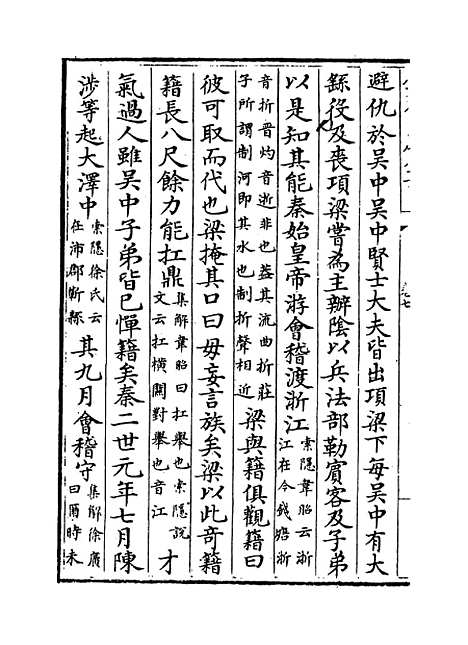 避仇於吳中吳中賢士大夫皆出項梁下每吳中有大
繇役及喪項梁嘗為主辦陰以兵法部勒賓客及子弟
以是知其能秦始皇帝游會稽渡浙江索隱韋昭云浙江在今錢塘浙
音折晉灼音逝非也葢其流曲折莊子所謂制河即其水也制折聲相近梁與籍俱觀籍曰
彼可取而代也梁掩其口曰毋妄言族矣梁以此竒籍
籍長八尺餘力能扛鼎集解韋昭曰扛舉也索隱說文云扛橫關對舉也音江才
氣過人雖吳中子弟皆已憚籍矣秦二世元年七月陳
涉等起大澤中索隱徐氏云在沛郡蘄縣其九月會稽守集解徐廣曰爾時未